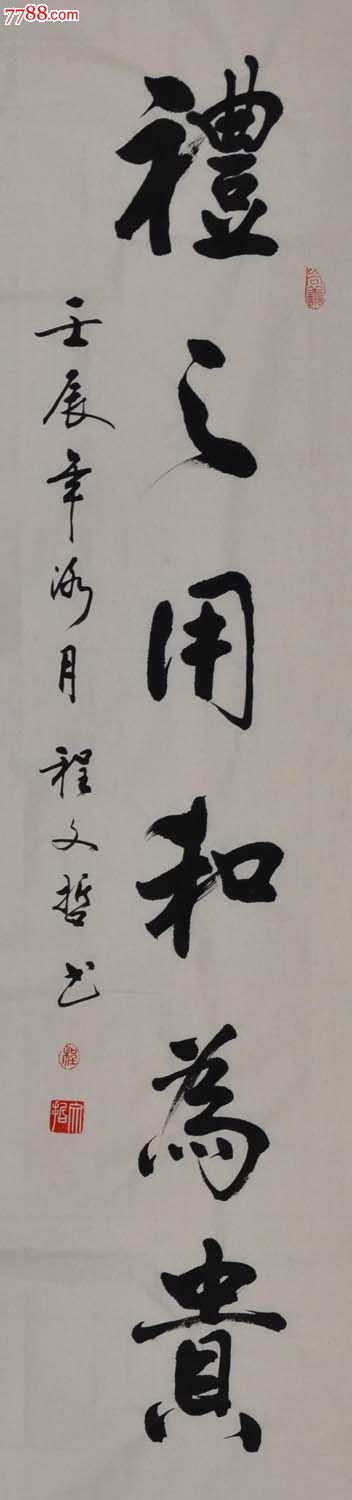 7788.com
禮之用和為貴
壬辰年冰月 程文哲书
程
文哲